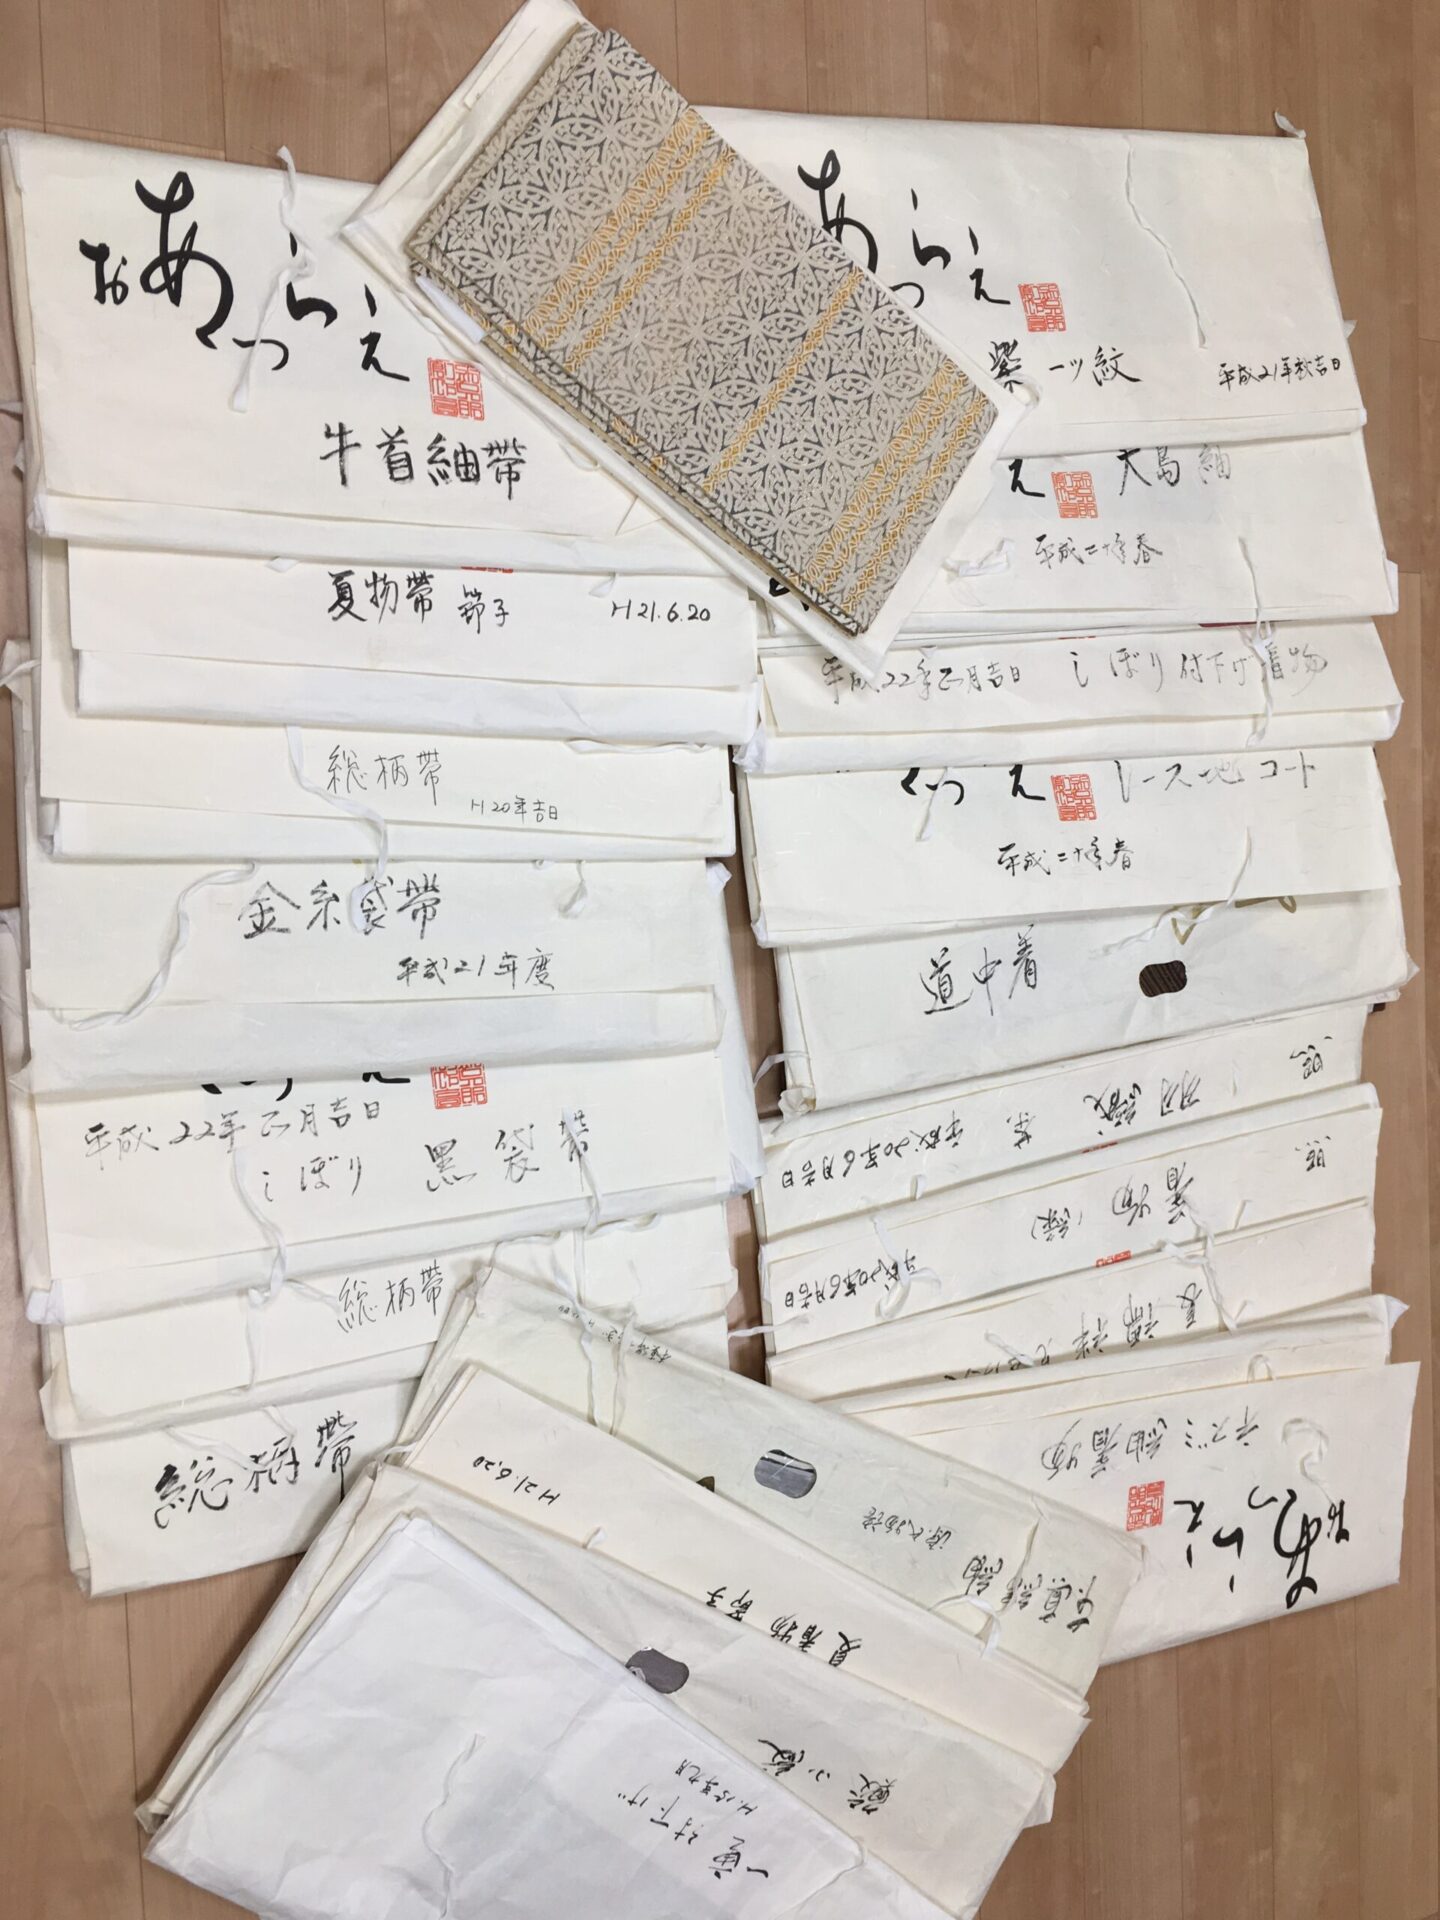 おあつらえ
牛首紬帯
夏物帯 節子 H21.6.20
総柄帯
H20年吉日
金糸袋帯
平成21年度
平成22年正月吉日
しぼり 黒袋帯
総柄帯
総柄帯
あつらえ
紫一ツ紋 平成21年秋吉日
え 大島紬
平成二十年春
平成22年正月吉日 しぼり付下げ着物
つらえ レース地コート
平成二十年春
道中着
平成20年6月吉日
着物
平成20年6月吉日
長襦袢
ネズミ紬着物
おあつらえ
源氏物語
H21.6.20
夏着物 節子
小紋
付下げ